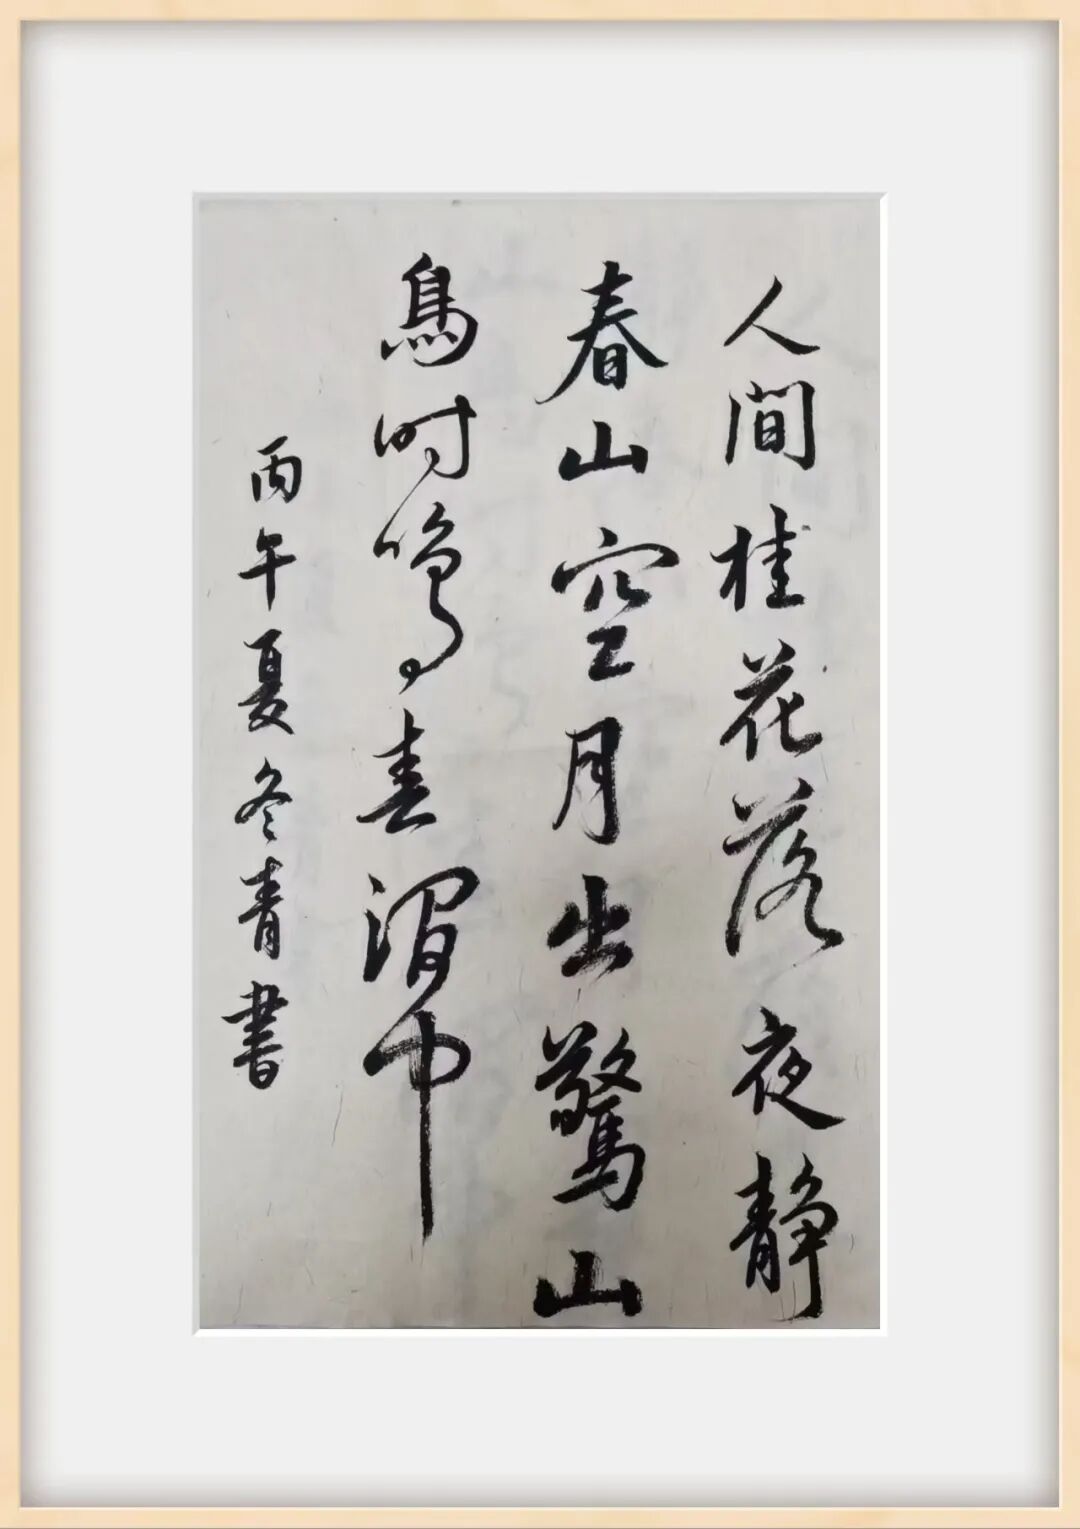 人間桂花落夜静
春山空月出驚山
鳥时鸣春澗中
丙午夏冬青書